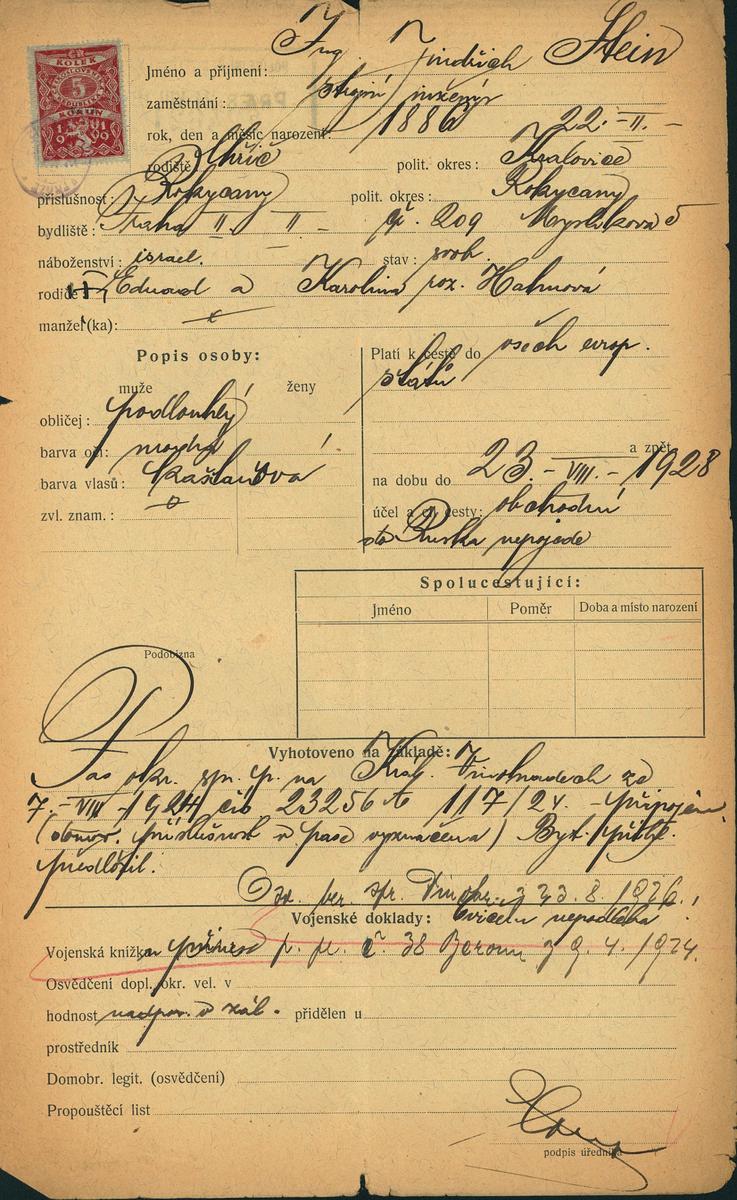 ČR
KOLEK
ČESKOSLOVENSKÉ REPUBLIKY
5
KORUN
1919
Jméno a příjmení: Ing. Jindřich Stein
zaměstnání: strojní inženýr
rok, den a měsíc narození: 1886 22.-II.-
rodiště: polit. okres: Kralovice
příslušnost: Rokycany polit. okres: Rokycany
bydliště: Praha II. čp. 209 Myslíkova 5
náboženství: israel. stav: svob.
rodiče: Eduard a Karolina roz. Hahnová
manžel(ka):
Popis osoby: Platí k cestě do všech evrop.
muže ženy států
obličej: podlouhlý
barva očí: modrá a zpět
barva vlasů: kaštanová na dobu do 23.-VIII.-1928
zvl. znam.: účel a cíl cesty: obchodní
do Ruska nepojede
Spolucestující:
Jméno Poměr Doba a místo narození
Podobizna
Vyhotoveno na základě:
Pas okr. spr. p. na Král. Vinohradech ze
7.-VIII-1924 čís 23256 117/24. - připojen
(obnov. příslušnost v pase vyznačena) Byt. přihl.
předložil.
ber. spr. Vinohr. z 23.8.1926.
Vojenské doklady: Cvičení nepodléhá
Vojenská knížka p. pl. č. 38 Beroun z 9.4.1924.
Osvědčení dopl. okr. vel. v
hodnost nadpor. v zál. přidělen u
prostředník
Domobr. legit. (osvědčení)
Propouštěcí list
podpis úředníka